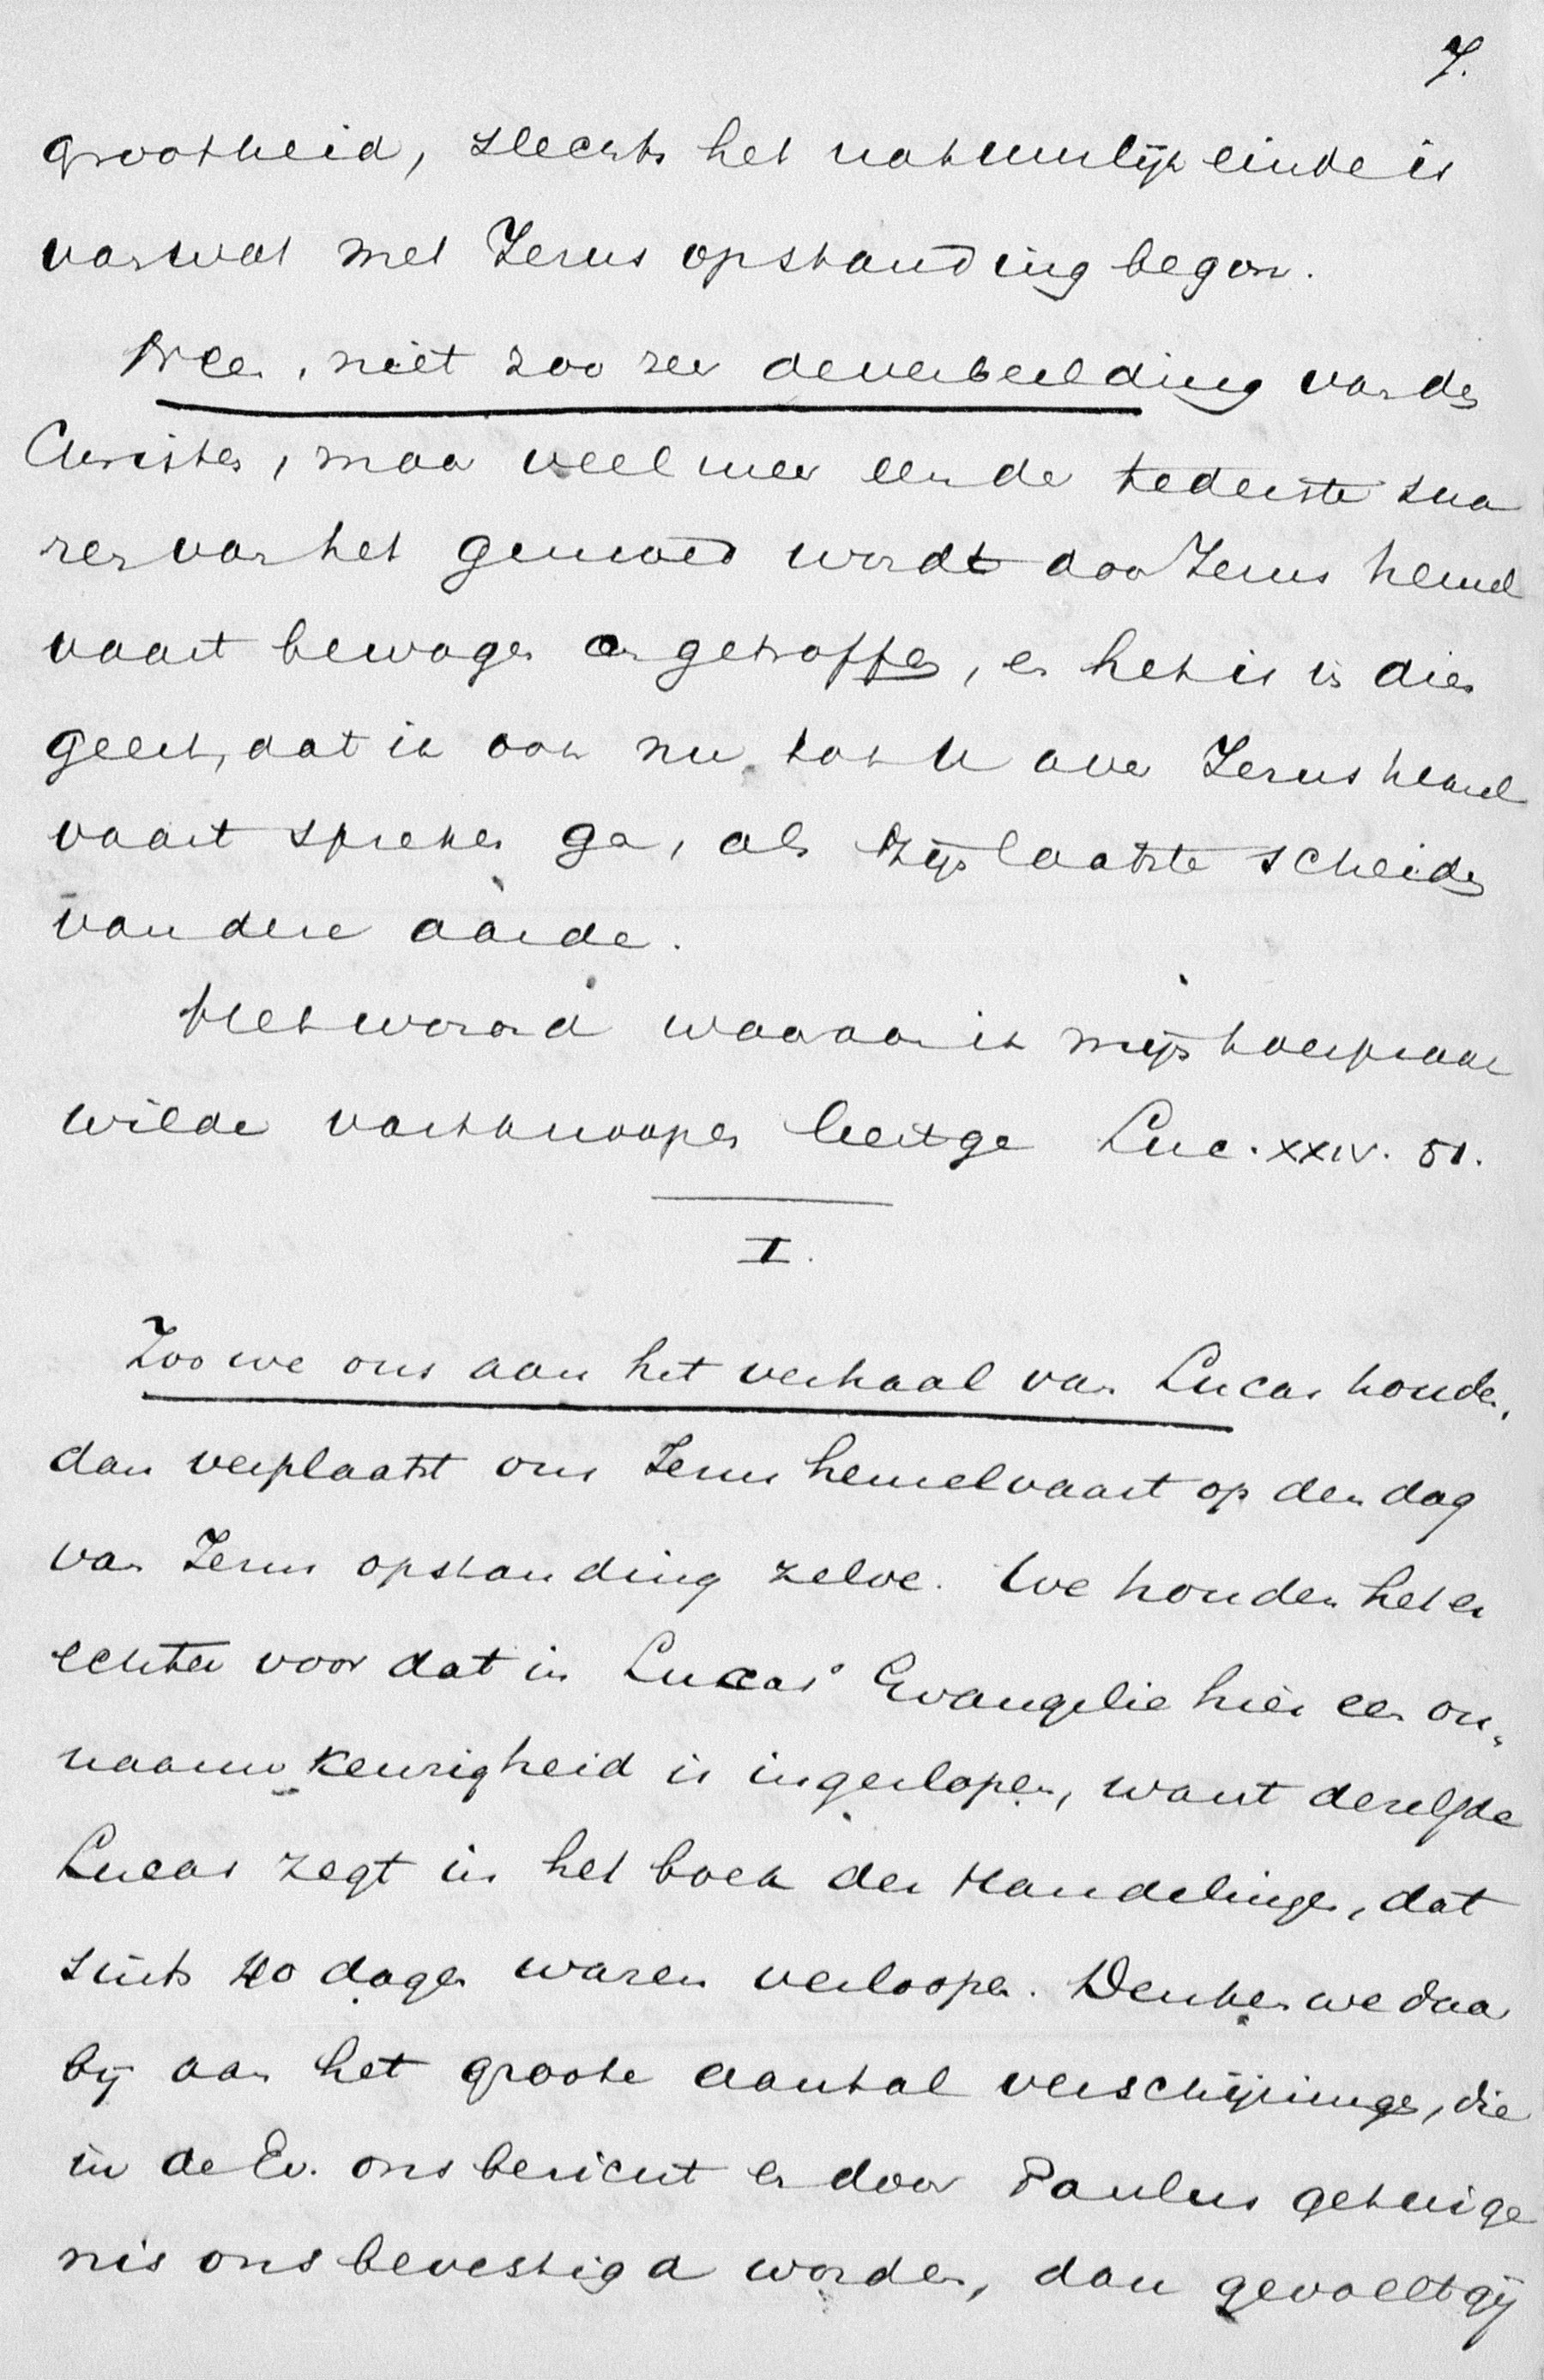 7.
grootheid, slechts het natuurlijk einde is
van wat met Jezus opstanding begon.
Neen, niet zoo zeer de verbeelding van den
Christen, maar veel meer een der tederste sna
ren van het gemoed wordt door Jezus hemel
vaart bewogen en getroffen, en het is in dien
geest, dat ik ook nu tot U over Jezus hemel
vaart spreken ga, als Zijn laatste scheiden
van deze aarde.
Het woord waaraan ik mijn toespraak
wilde vastknoopen leest ge Luc. XXIV. 51.
I.
Zoo we ons aan het verhaal van Lucas houden,
dan verplaatst ons Jezus hemelvaart op den dag
van Jezus opstanding zelve. We houden het er
echter voor dat in Lucas' Evangelie hier een on-
naauwkeurigheid is ingeslopen, want dezelfde
Lucas zegt in het boek der Handelingen, dat
sints 40 dagen waren verloopen. Denken we daar
bij aan het groote aantal verschijningen, die
in de Ev. ons bericht en door Paulus getuige
nis ons bevestigd worden, dan gevoelt gij